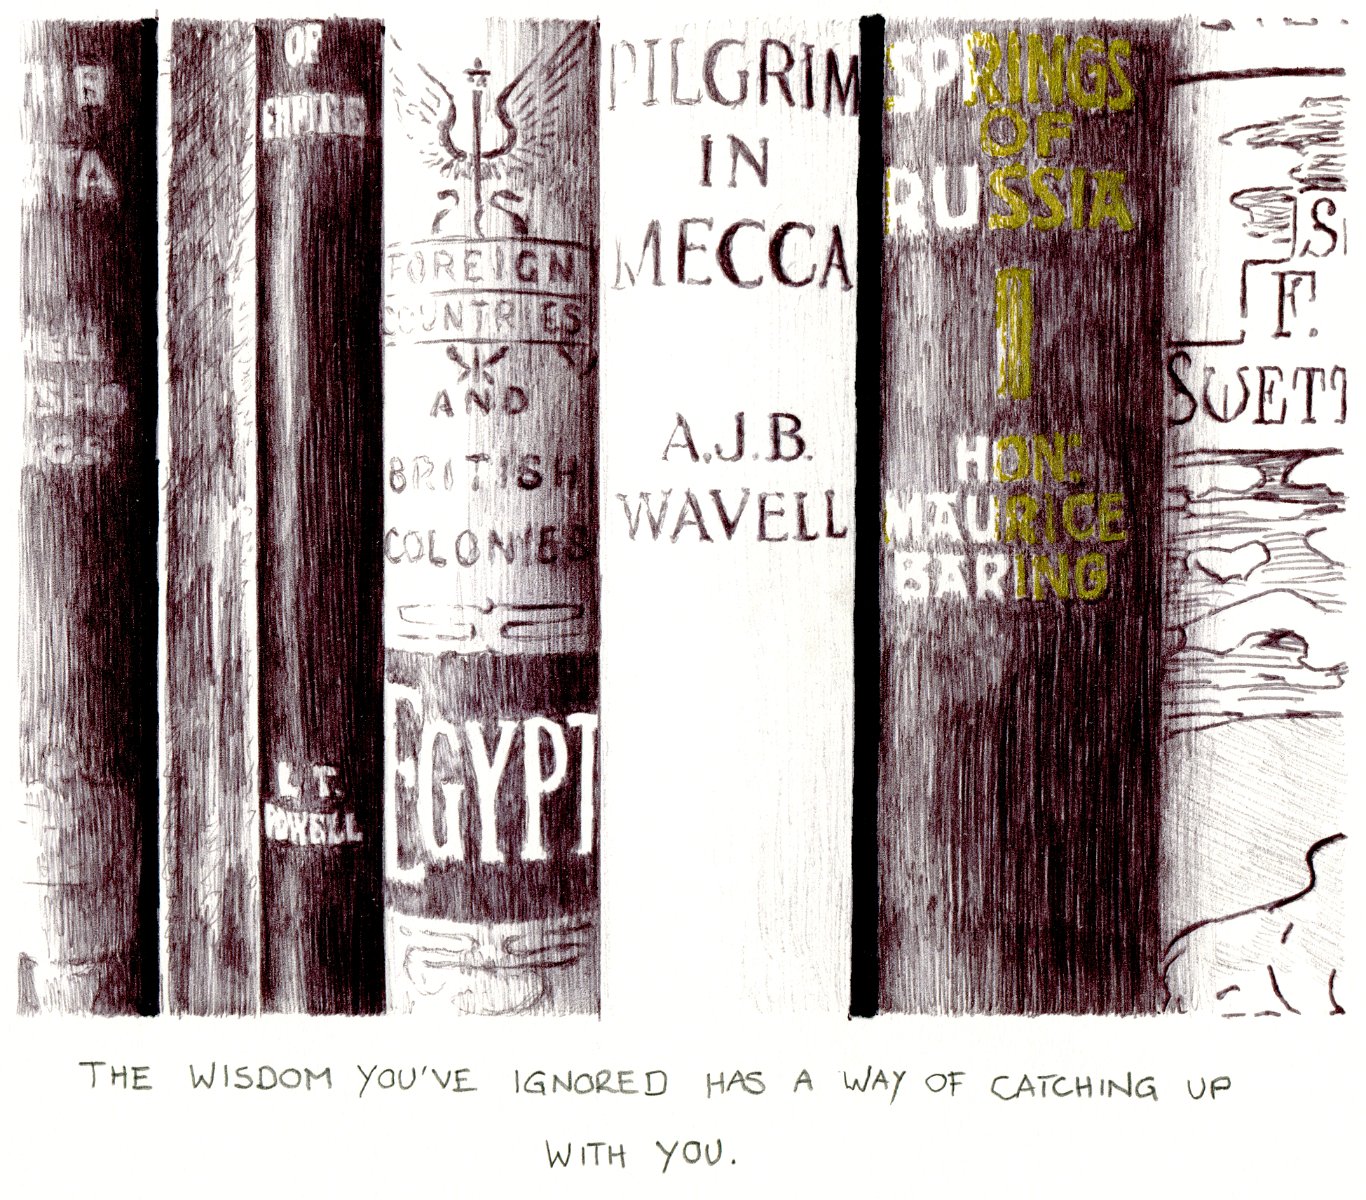 OF
EMPIRE
L. T.
POWELL
FOREIGN
COUNTRIES
AND
BRITISH
COLONIES
EGYPT
PILGRIM
IN
MECCA
A.J.B.
WAVELL
SPRINGS
OF
RUSSIA
HON.
MAURICE
BARING
F.
SWETT
THE WISDOM YOU'VE IGNORED HAS A WAY OF CATCHING UP
WITH YOU.